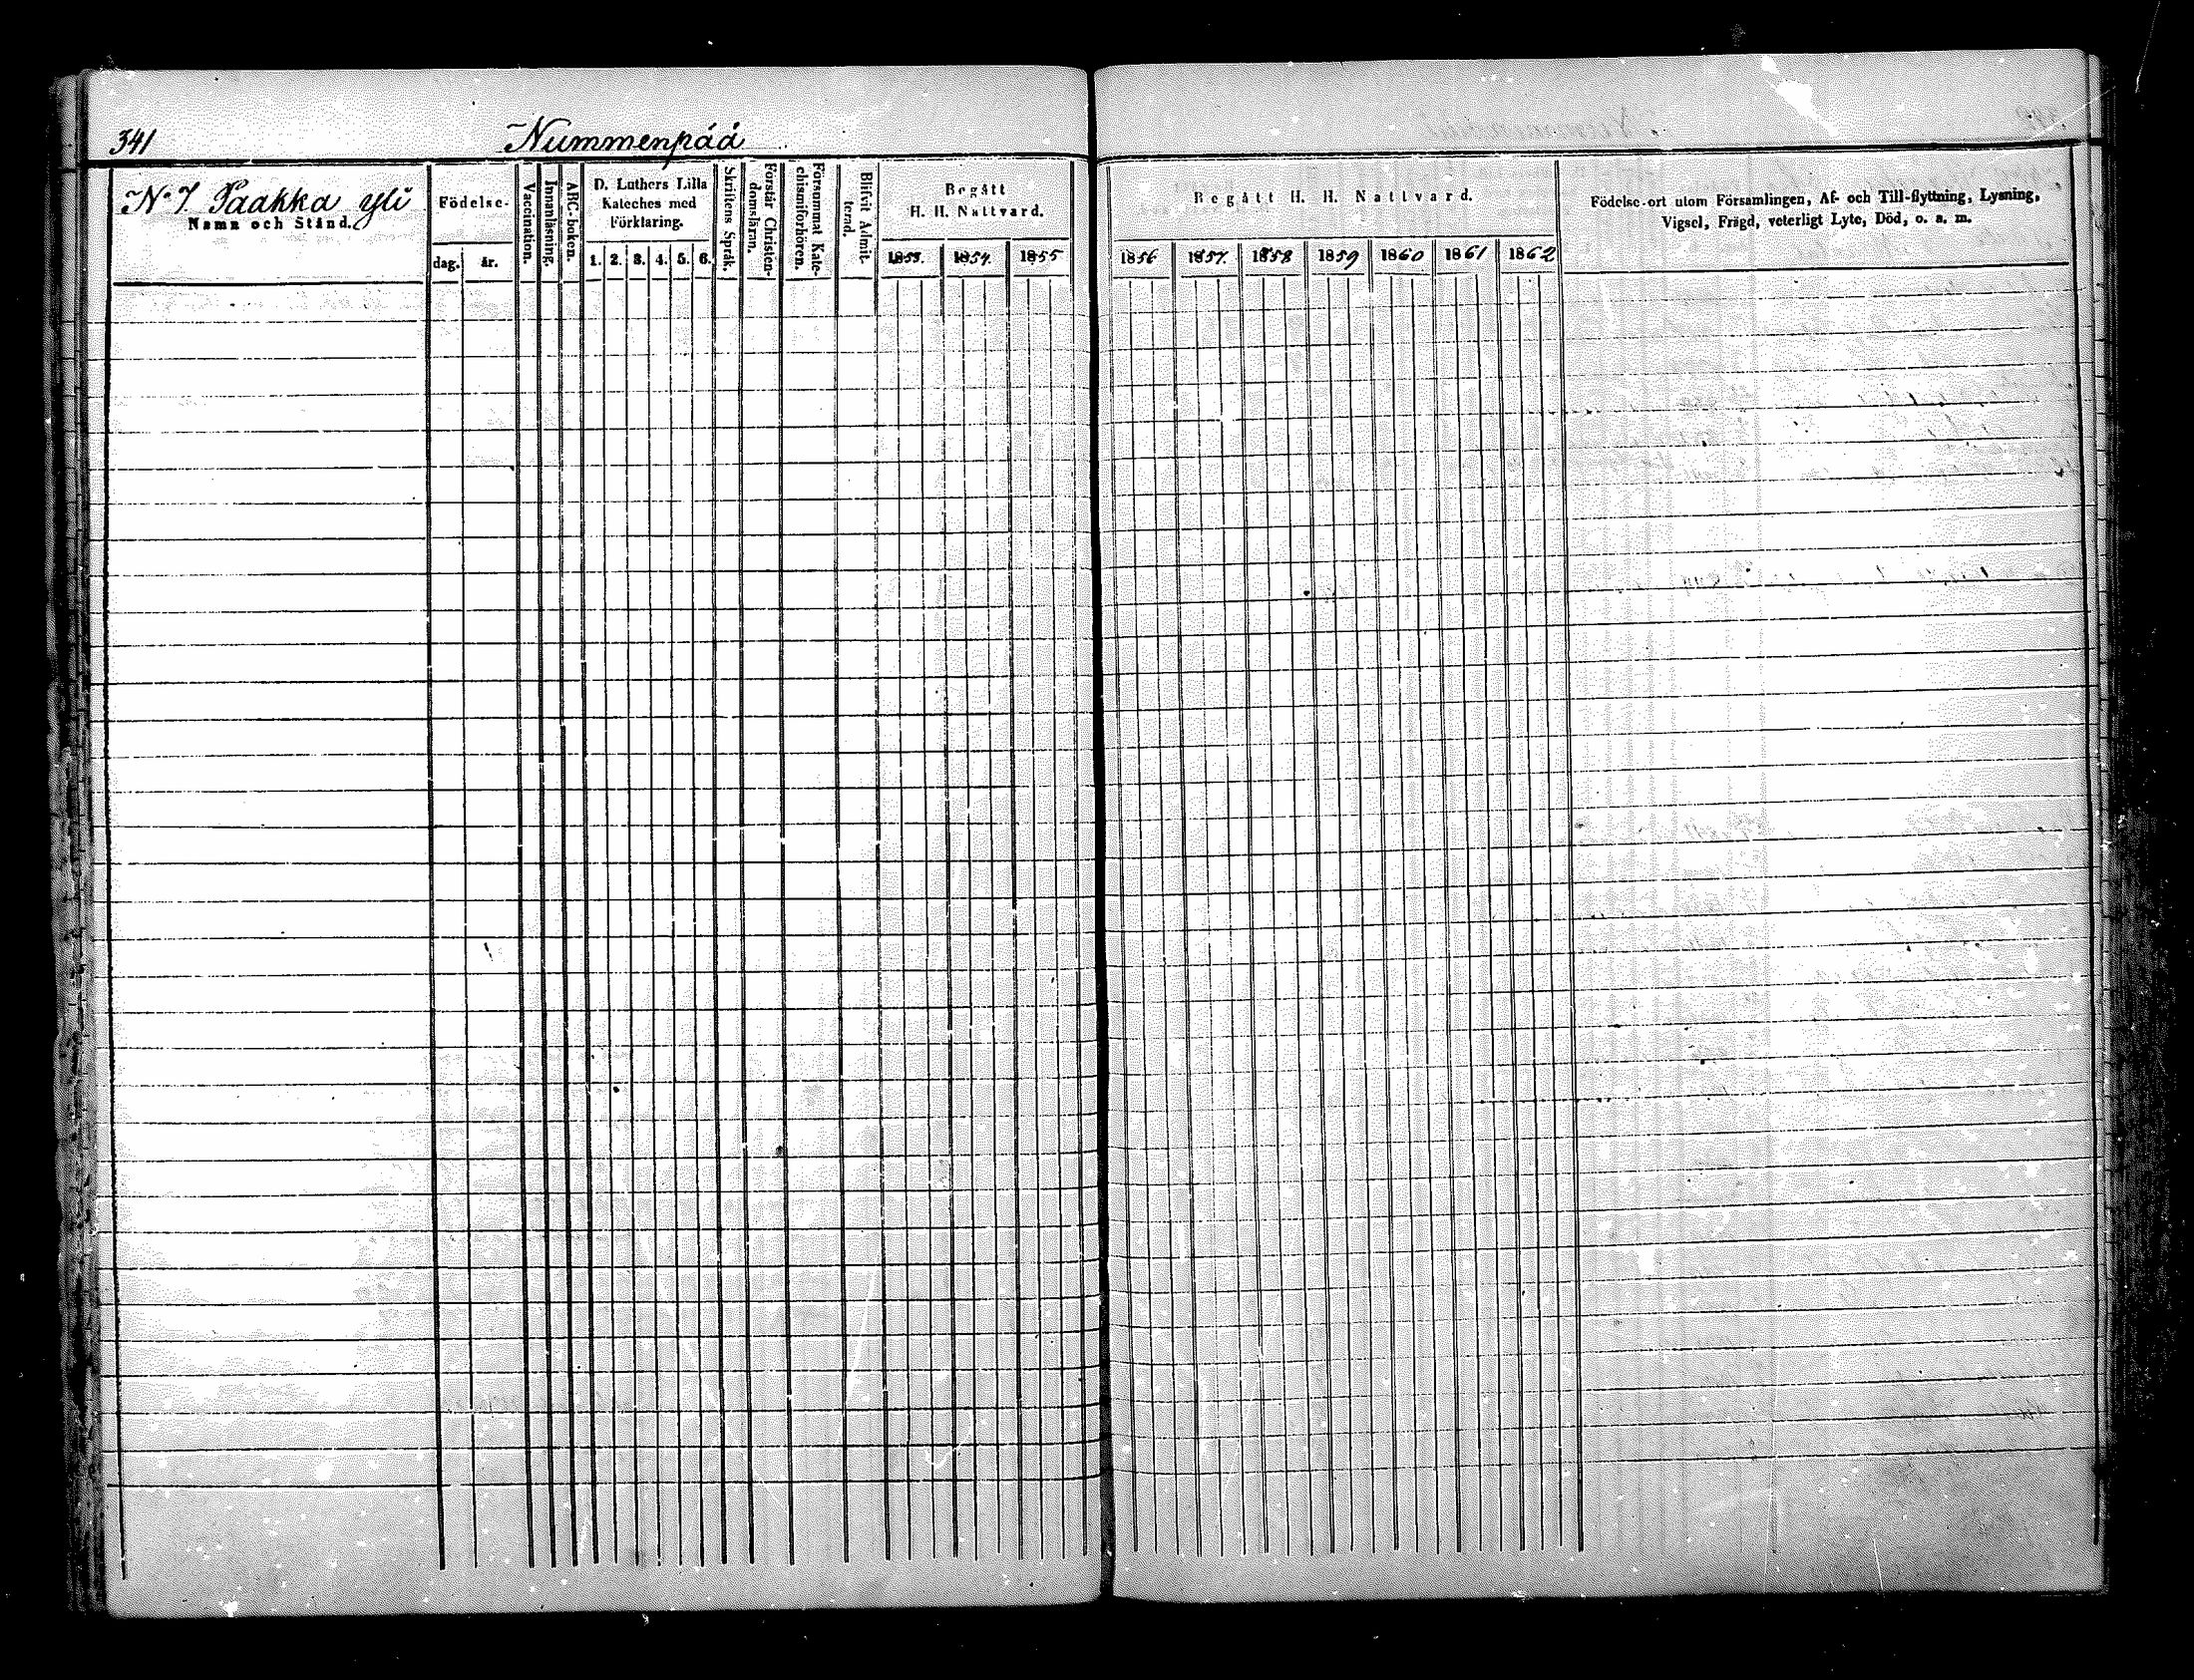 341
Nummenpää
No 7. Paakka yli
Namn och Stånd.
Födelse-
dag.
år.
Vaccination.
Innanläsning.
ABC-boken.
D. Luthers Lilla
Kateches med
Förklaring.
1. 2. 3. 4. 5. 6.
Skriftens Språk.
Förstår Christen-
domsläran.
Försummat Kate-
chismiförhören.
Blifvit Admit-
terad.
Begått
H. H. Nattvard.
1853. 1854. 1855
Begått H. H. Nattvard.
1856 1857. 1858 1859 1860 1861 1862
Födelse-ort utom Församlingen, Af- och Till-flyttning, Lysning,
Vigsel, Frägd, veterligt Lyte, Död, o. s. m.